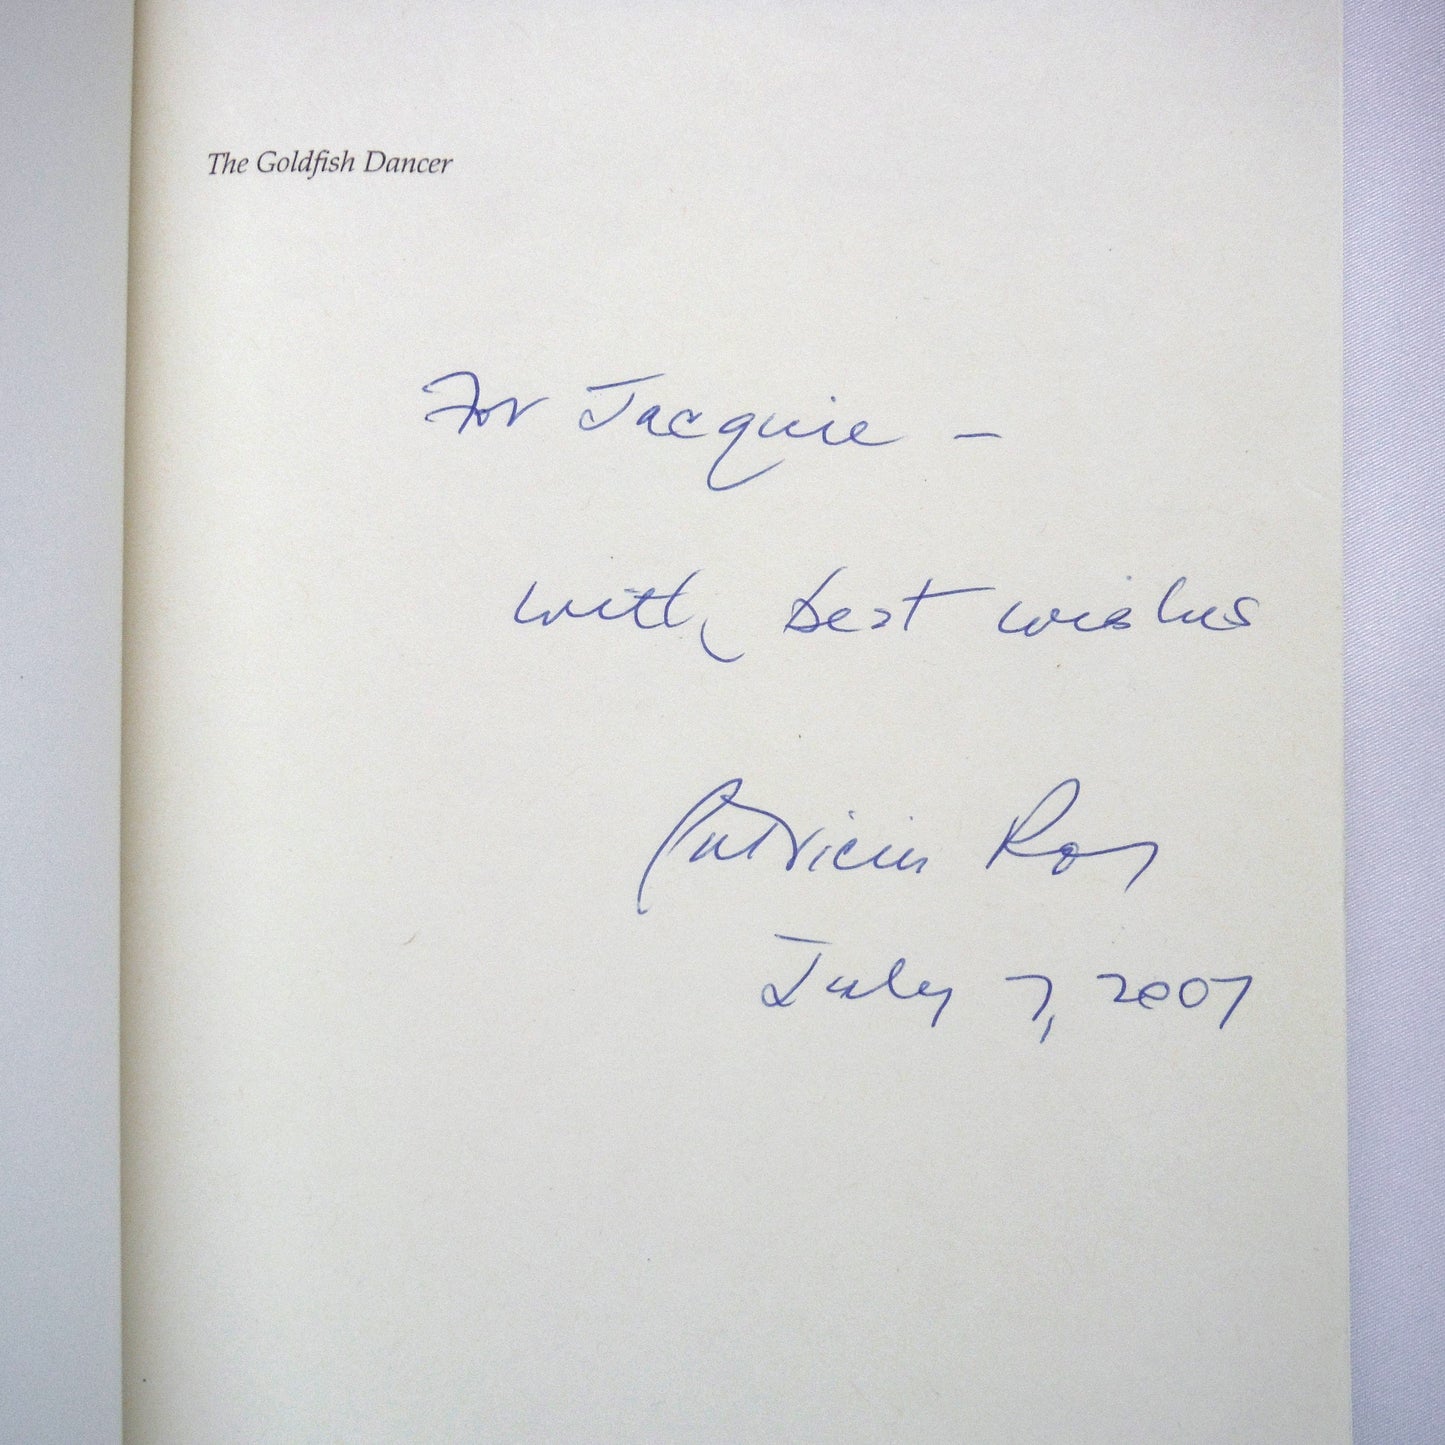 The Goldfish Dancer
For Jacquie –
with best wishes
Patricia
July 7, 2007